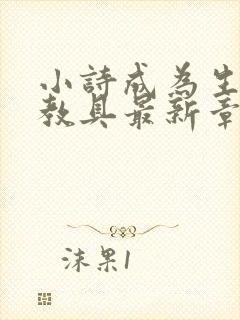 小詩成為生
教具最新章
沫果1